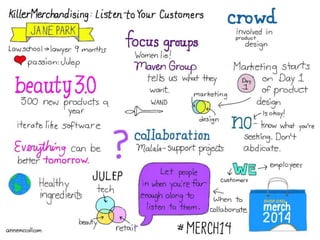 KillerMerchandising: Listen to Your Customers
JANE PARK
Law school → lawyer 9 months
passion: Julep
beauty 3.0
300 new products a
year
iterate like software
Everything can be
better tomorrow.
Healthy
ingredients
annemccoll.com
focus groups
Women lie!
Maven Group
tells us what they
want.
WAND
marketing
design
?
collaboration
Malala - support projects
JULEP
tech
beauty
retail
Let people
in when you're far
enough along to
listen to them.
#MERCH14
crowd
involved in
product
design
Marketing starts
Day
1
on Day 1
of product
design
no
Is okay!
- know what you're
seeking. Don't
abdicate.
WE
employees
customers
when to
collaborate
shop.org
merch
2014